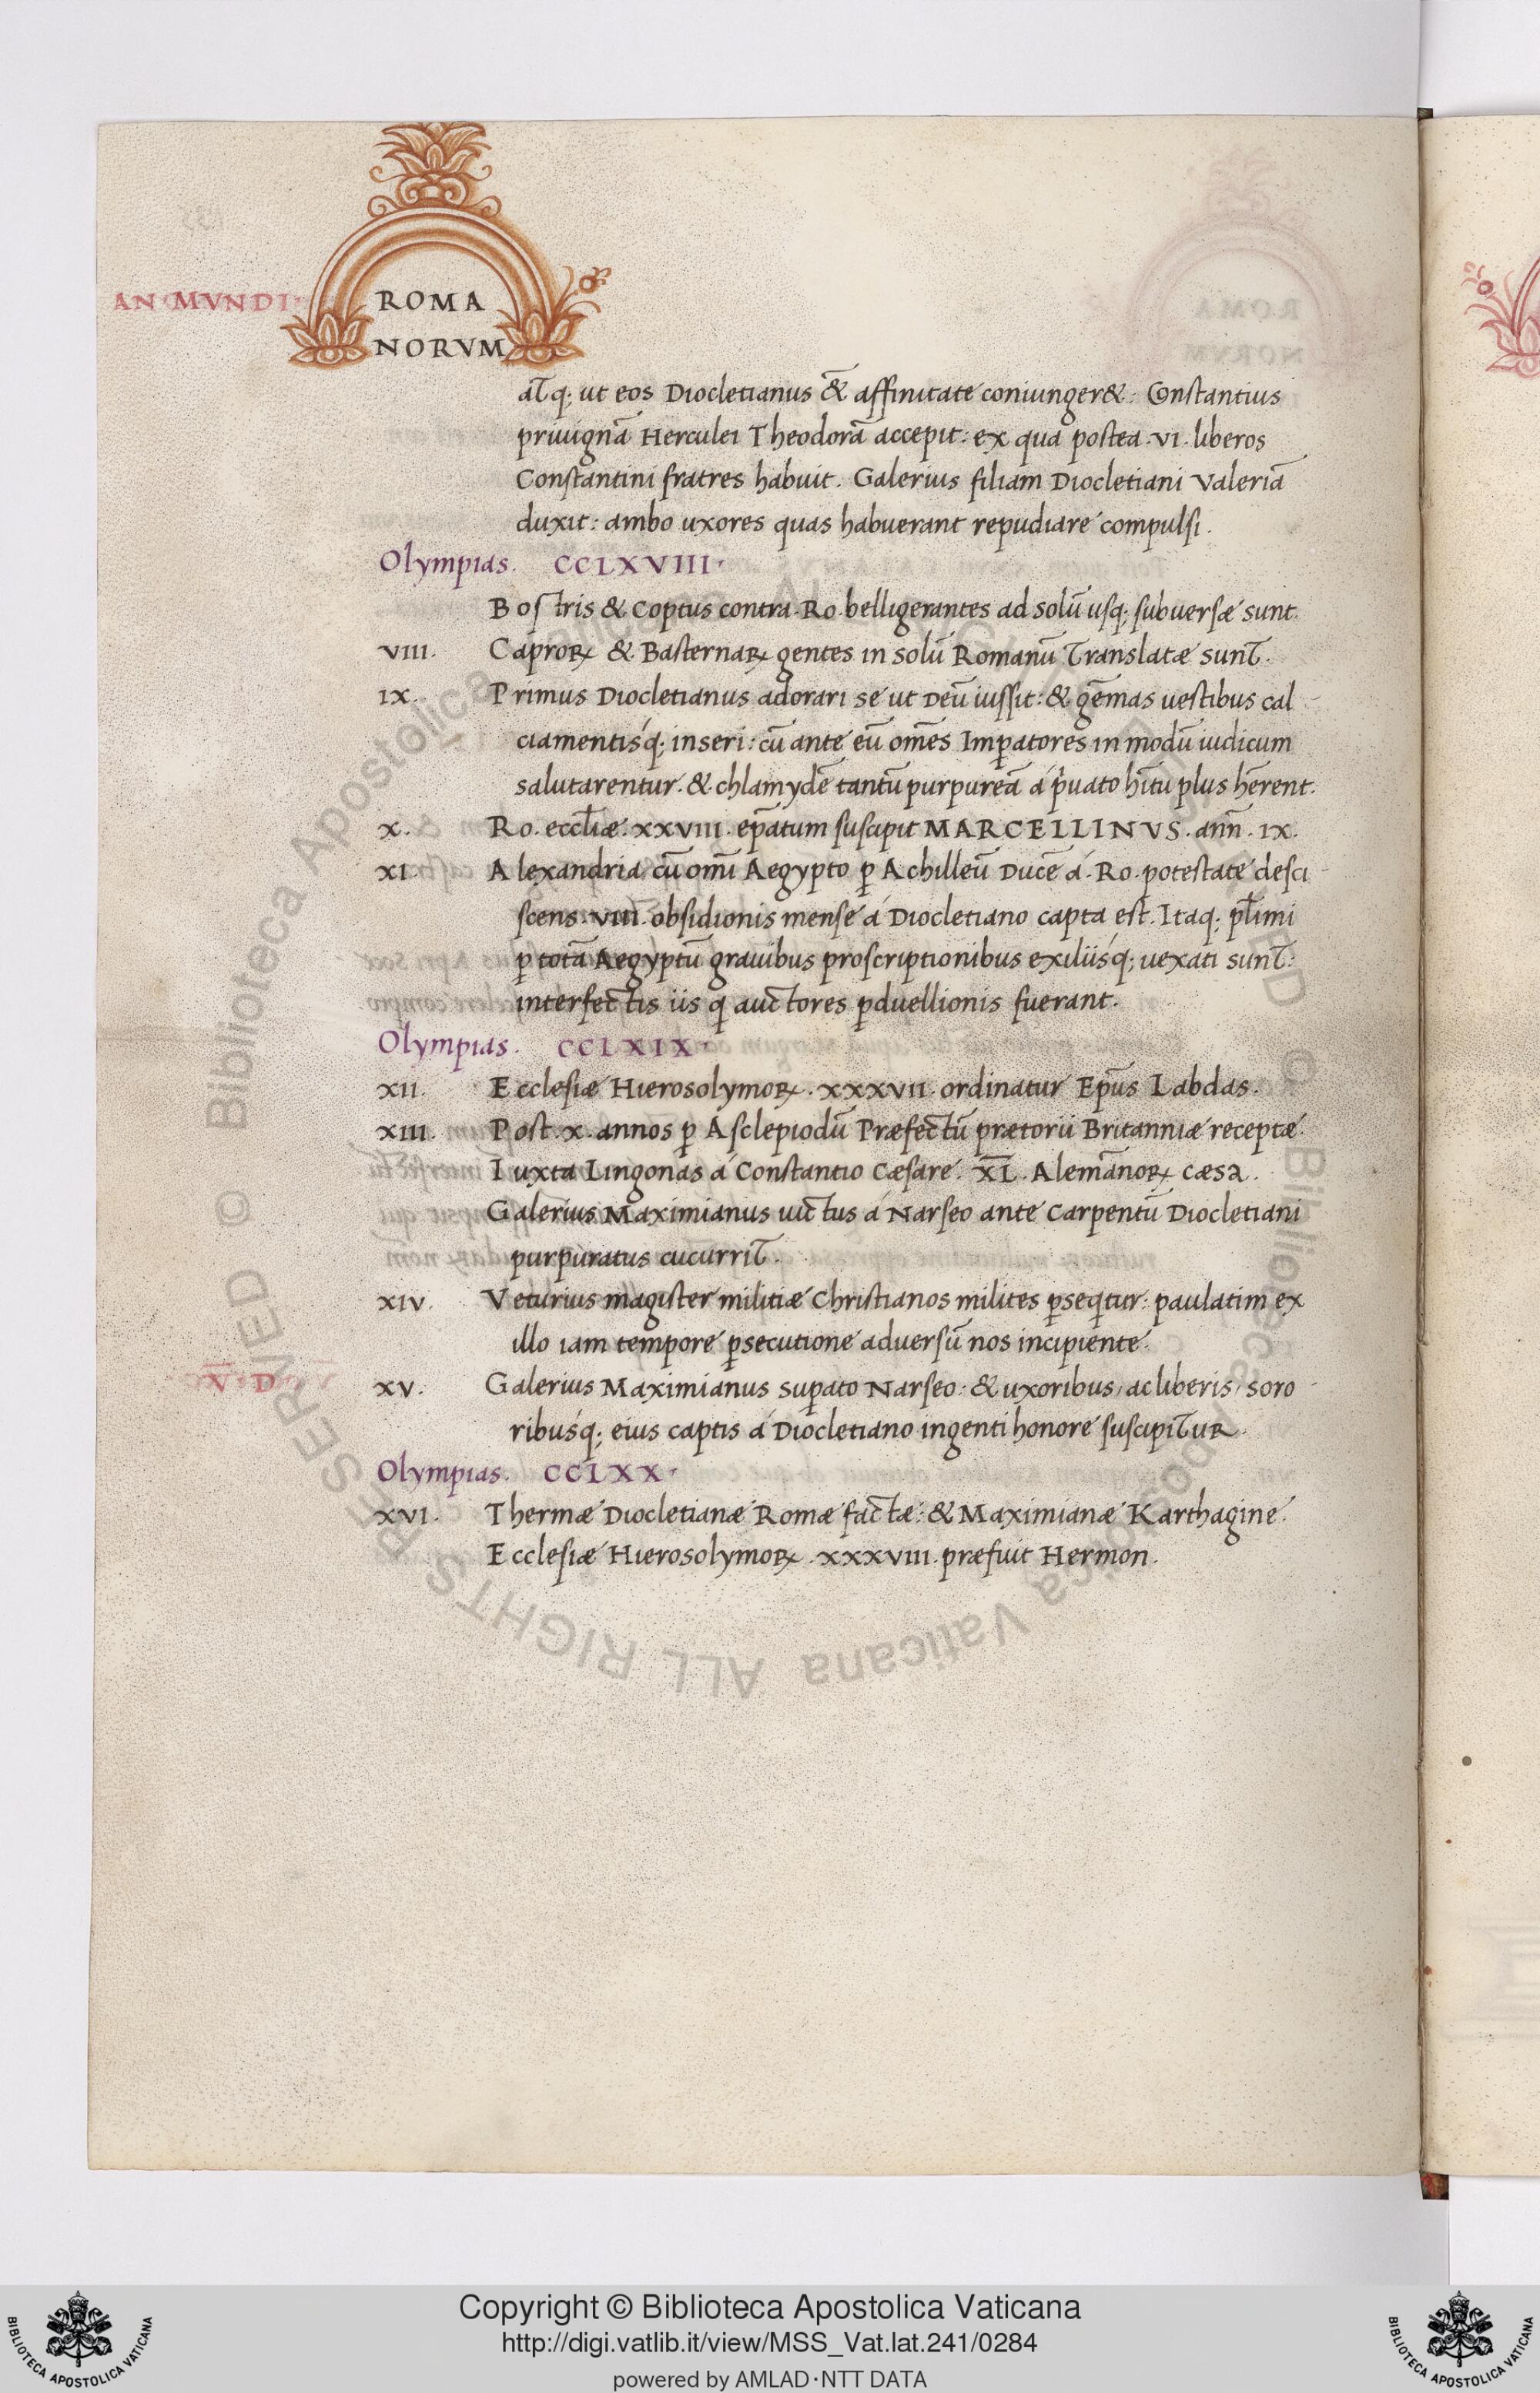 AN·MVNDI·
ROMA
NORVM
atq; ut eos Diocletianus & affinitate coniunger&: Constantius
priuignā Herculei Theodorā accepit: ex qua postea ·VI· liberos
Constantini fratres habuit. Galerius filiam Diocletiani Valeriā
duxit: ambo uxores quas habuerant repudiare compulsi.
Olympias. CCLXVIII·
Bostris & Coptus contra Ro. belligerantes ad solū usq; subuersæ sunt.
VIII. Caproꝝ & Basternaꝝ gentes in solū Romanū Translatæ sunt.
IX. Primus Diocletianus adorari se ut Deū iussit: & gēmas uestibus cal
ciamentisq́; inseri: cū ante eū om̄es Imꝑatores in modū iudicum
salutarentur. & chlamydē tantū purpureā á pͥuato hītu plus hērent.
X. Ro. eccl̄iæ. XXVIII. ep̄atum suscipit MARCELLINVS. ann̄. IX.
XI. Alexandria cū omī Aegypto ꝑ Achilleū Ducē á Ro. potestate desci
scens. VIII. obsidionis mense á Diocletiano capta est. Itaq; pl̄imi
ꝑ totā Aegyptū grauibus proscriptionibus exiliisq́; uexati sunt:
interfectis iis q̇ auctores ꝑduellionis fuerant.
Olympias. CCLXIX·
XII. Ecclesiæ Hierosolymoꝝ. XXXVII. ordinatur Ep̄us Labdas.
XIII. Post. X. annos ꝑ Asclepiodū Præfectū prætorii Britanniæ receptæ.
Iuxta Lingonas á Constantio Cæsare. X̅L̅. Alemānoꝝ cæsa.
Galerius Maximianus uictus á Narseo ante Carpentū Diocletiani
purpuratus cucurrit.
XIV. Veturius magister militiæ Christianos milites ꝑseqͥtur: paulatim ex
illo iam tempore ꝑsecutione aduersū nos incipiente.
V̅·D̅·
XV. Galerius Maximianus suꝑato Narseo: & uxoribus, ac liberis, soro
ribusq́; eius captis á Diocletiano ingenti honore suscipitur.
Olympias. CCLXX·
XVI. Thermæ Diocletianæ Romæ factæ: & Maximianæ Karthagine.
Ecclesiæ Hierosolymoꝝ. XXXVIII. præfuit Hermon.
© Biblioteca Apostolica Vaticana ALL RIGHTS RESERVED
Copyright © Biblioteca Apostolica Vaticana
http://digi.vatlib.it/view/MSS_Vat.lat.241/0284
powered by AMLAD·NTT DATA
BIBLIOTECA APOSTOLICA VATICANA
BIBLIOTECA APOSTOLICA VATICANA